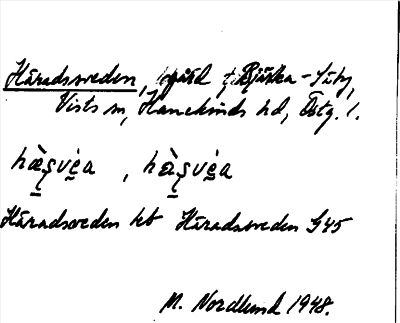 Häradssveden, gård t. Bjärka-Säby,
Vists sn, Hanekinds hd, Östg. l.
hæ̀ṣvéa , hæ̀ṣvéa
Häradsveden kb Häradssveden G45
M. Nordlund 1948.